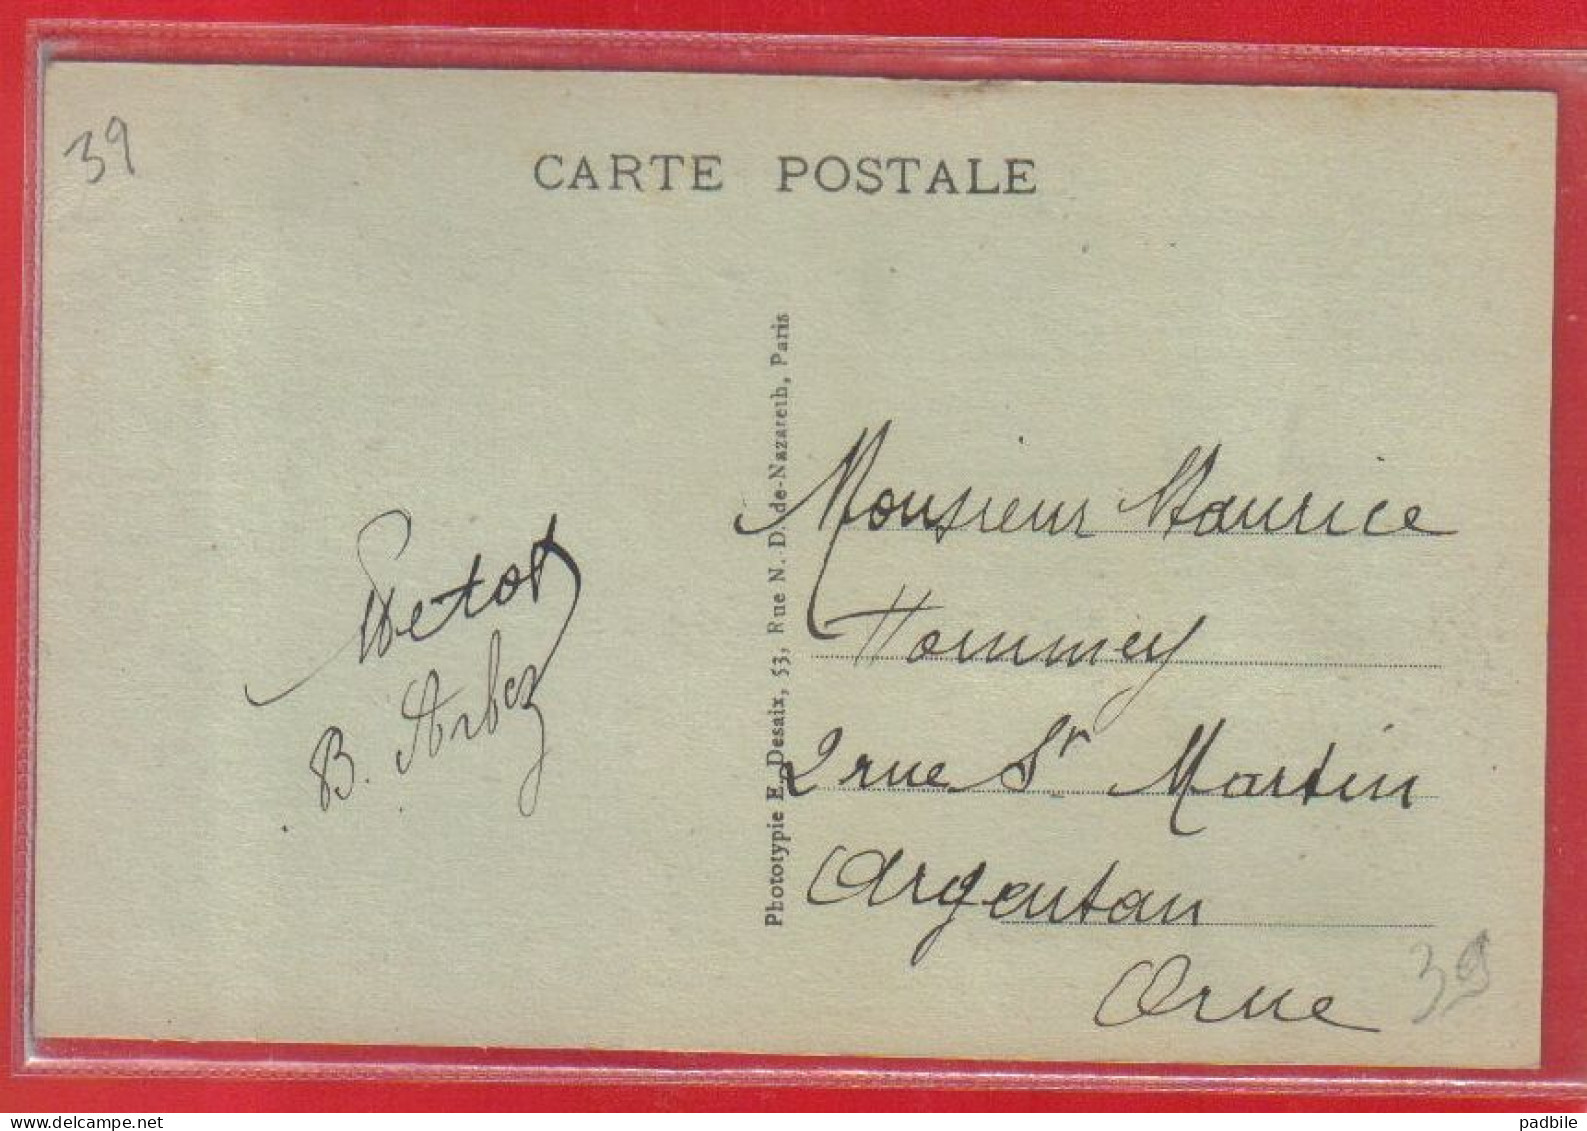 39
CARTE POSTALE
Phototypie E. Desaix, 53, Rue N. D. de-Nazareth, Paris
B. Arbez
Monsieur Maurice
Hommey
2 rue St Martin
Argentan
Orne
39
www.delcampe.net
padbile